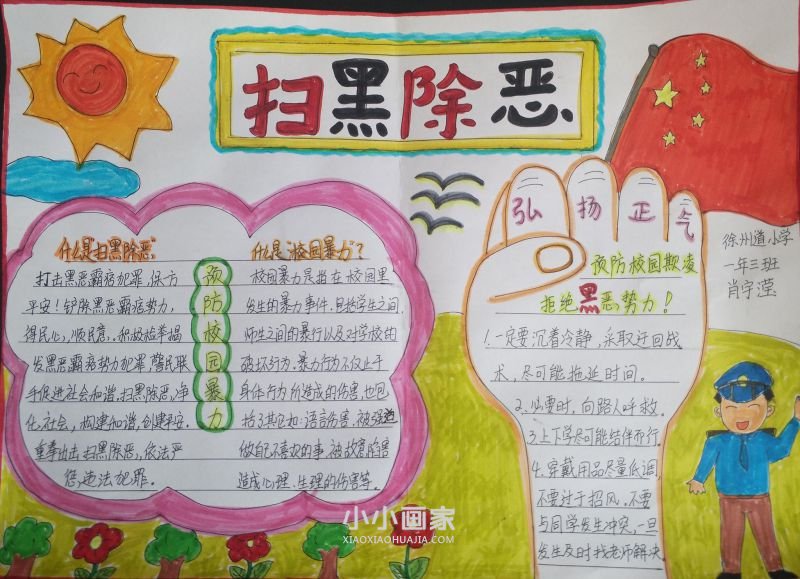 扫黑除恶
弘扬正气
徐州道小学
一年三班
肖宇滢
什么是扫黑除恶?
打击黑恶霸痞犯罪,保一方
平安!铲除黑恶霸痞势力,
得民心,顺民意,积极检举揭
发黑恶霸痞势力犯罪,警民联
手促进社会和谐,扫黑除恶,净
化社会,构建和谐,创建平安.
重拳出击扫黑除恶,依法严
惩,违法犯罪.
预防校园暴力
什么是“校园暴力”?
校园暴力是指在校园里
发生的暴力事件.包括学生之间.
师生之间的暴行以及对学校的
破坏行为.暴力行为不仅止于
身体行为所造成的伤害,也包
括了其它如:语言伤害.被强迫
做自己不喜欢的事.被故意伤害
造成心理.生理的伤害等.
预防校园欺凌
拒绝黑恶势力!
1.一定要沉着冷静,采取迂回战
术,尽可能拖延时间.
2.必要时,向路人呼救.
3.上下学尽可能结伴而行.
4.穿戴用品尽量低调,
不要过于招风.不要
与同学发生冲突,一旦
发生及时找老师解决
小小画家
XIAOXIAOHUAJIA.COM